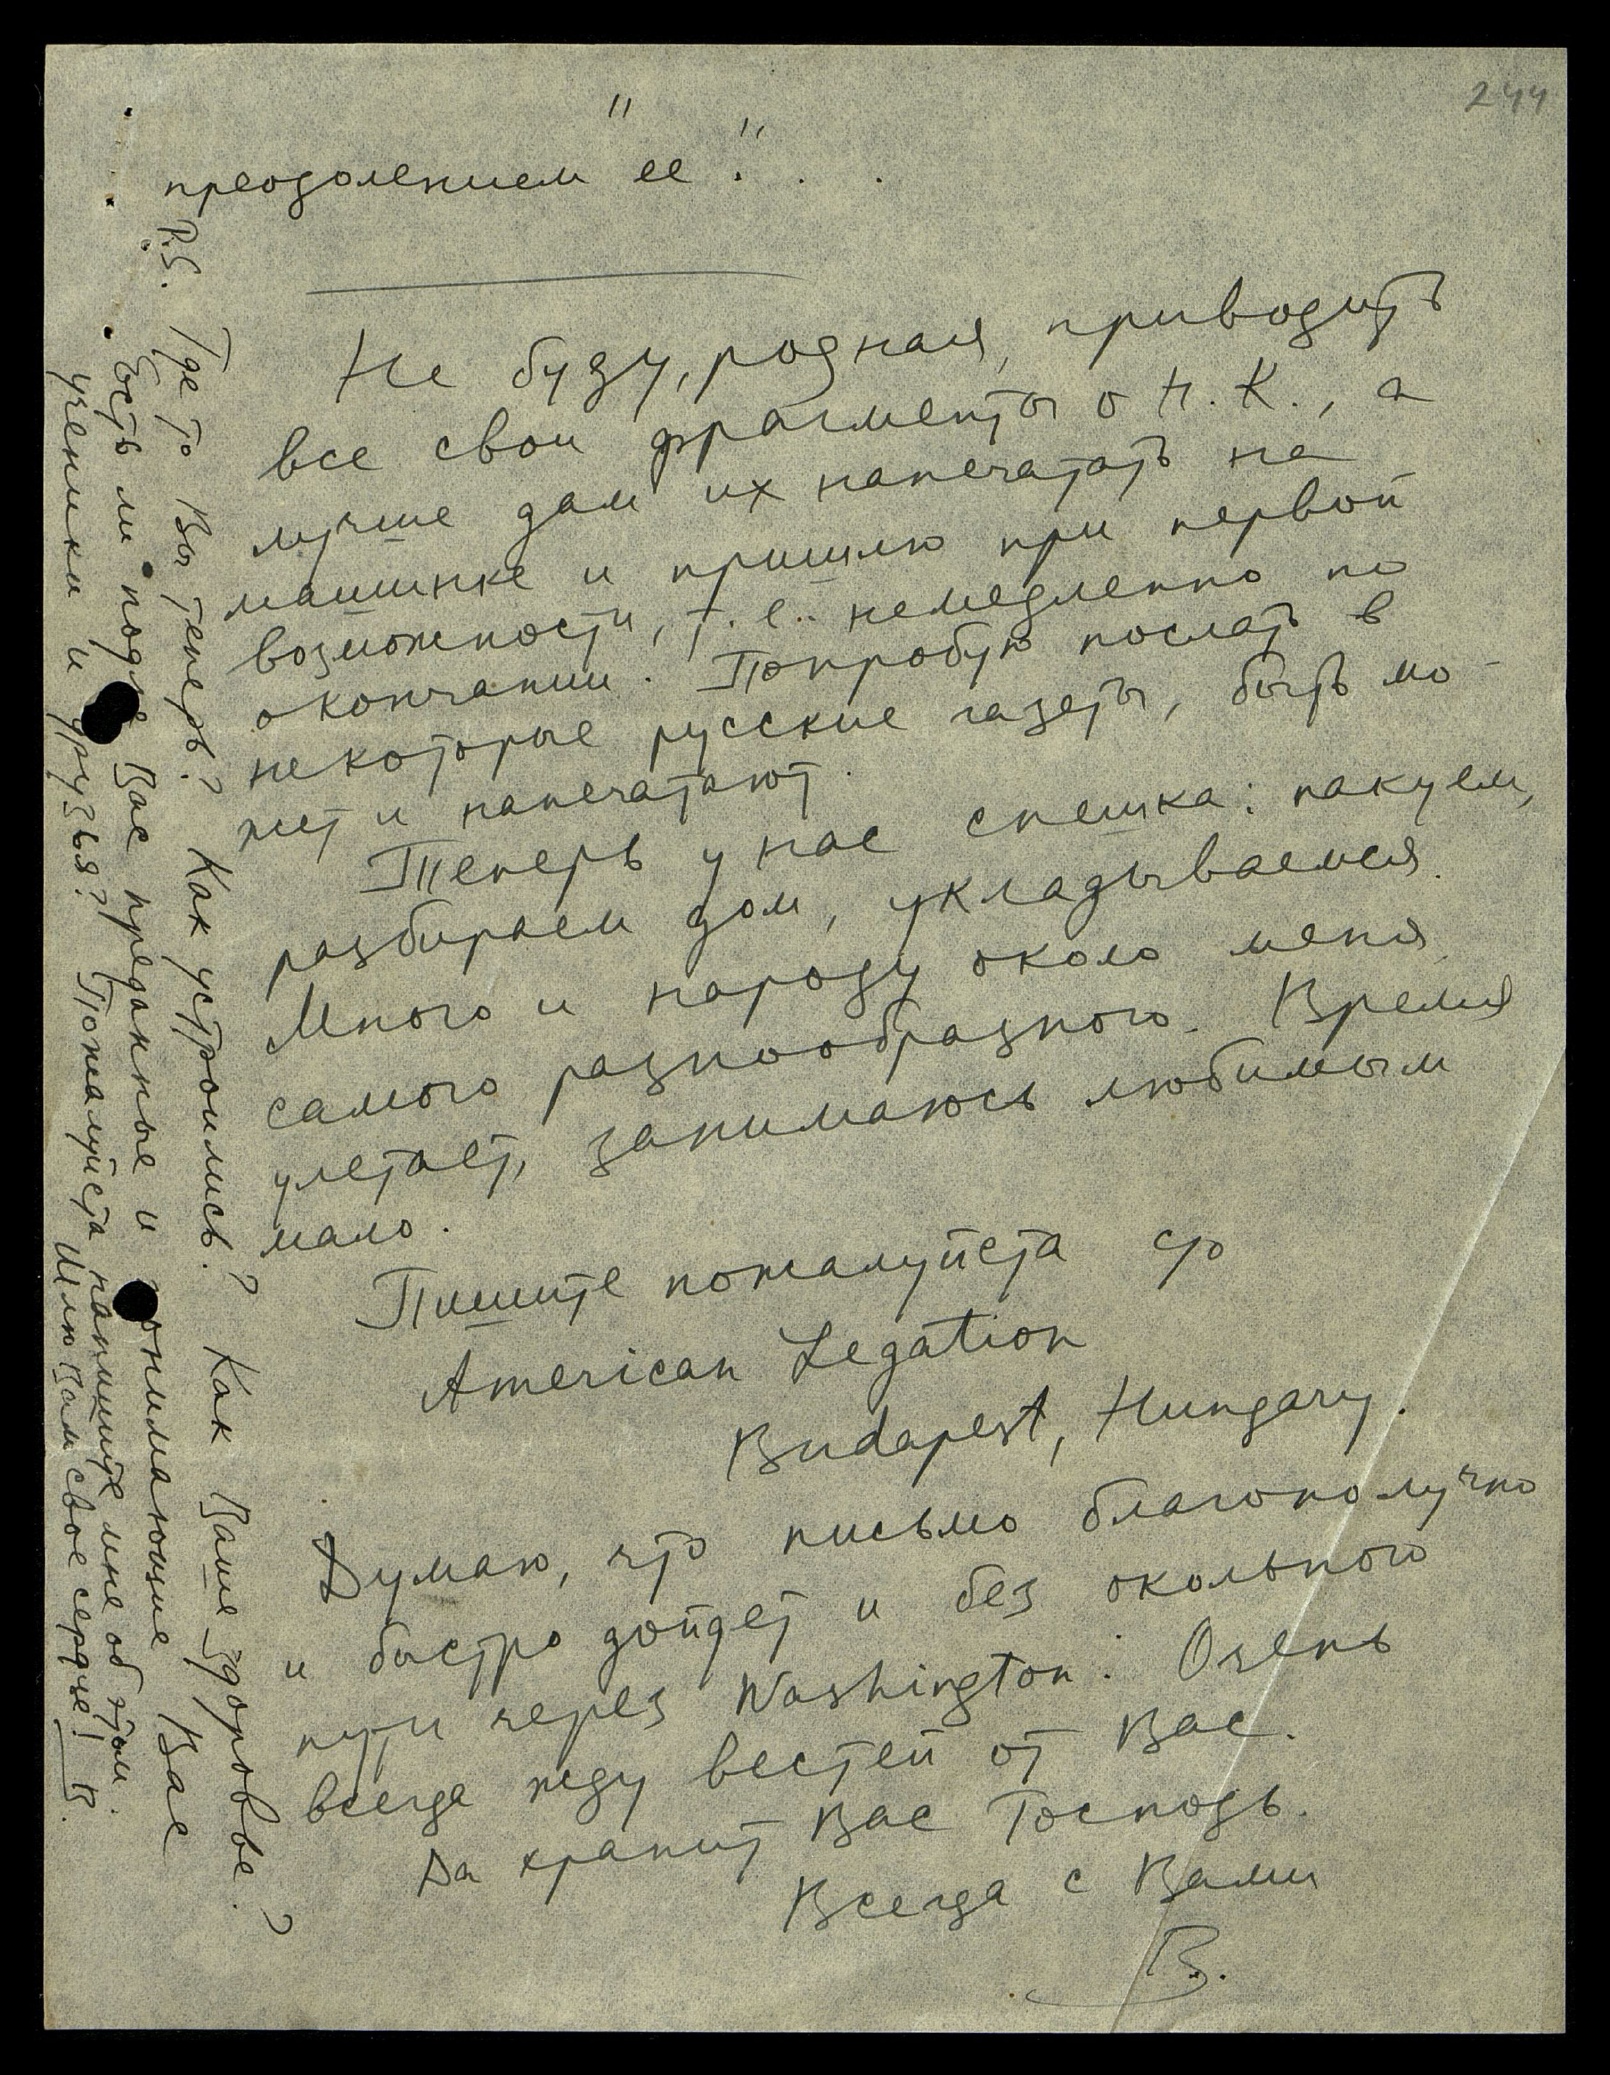 244
преодолением "ее". . .
Не буду, родная, приводить
все свои фрагменты о Н. К., а
лучше дам их напечатать на
машинке и пришлю при первой
возможности, т. е. немедленно по
окончании. Попробую послать в
некоторые русские газеты, быть мо-
жет и напечатают.
Теперь у нас спешка: пакуем,
разбираем дом, укладываемся.
Много и народу около меня
самого разнообразного. Время
улетает, занимаюсь любимым
мало.
Пишите пожалуйста c/o
American Legation
Budapest, Hungary.
Думаю, что письмо благополучно
и быстро дойдет и без окольного
пути через Washington. Очень
всегда жду вестей от Вас.
Да хранит Вас Господь.
Всегда с Вами
В.
P.S. Где то Вы теперь? Как устроились? Как Ваше здоровье?
Есть ли подле Вас преданные и понимающие Вас
ученики и друзья? Пожалуйста напишите мне об этом.
Шлю Вам свое сердце! В.